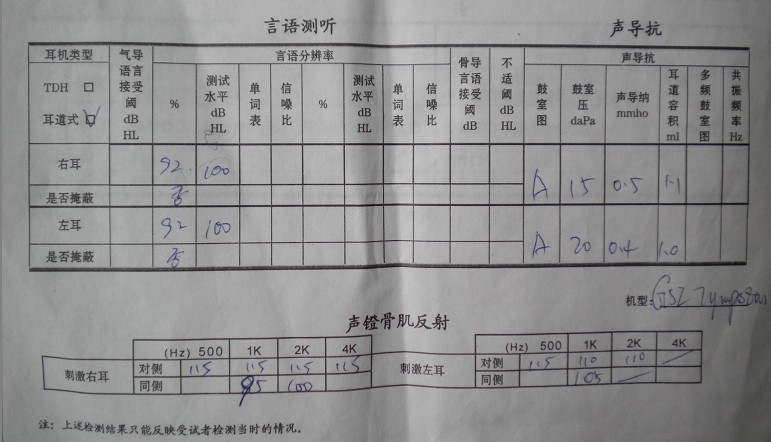 言语测听 声导抗
耳机类型 气导言语言接受阈dB HL 言语分辨率 骨导言语接受阈dB 不适阈dB HL 声导抗
TDH □ % 测试水平dB HL 单词表 信噪比 % 测试水平dB HL 单词表 信噪比 鼓室图 鼓室压daPa 声导纳mmho 耳道容积ml 多频鼓室图 共振频率Hz
耳道式 □
右耳 92 100 A 15 0.5 1.1
是否掩蔽 否
左耳 92 100 A 20 0.4 1.0
是否掩蔽 否
机型: GSI Tympstar
声镫骨肌反射
(Hz) 500 1K 2K 4K (Hz) 500 1K 2K 4K
刺激右耳 对侧 115 115 115 115 刺激左耳 对侧 115 110 110 /
同侧 95 100 同侧 105 /
注: 上述检测结果只能反映受试者检测当时的情况。